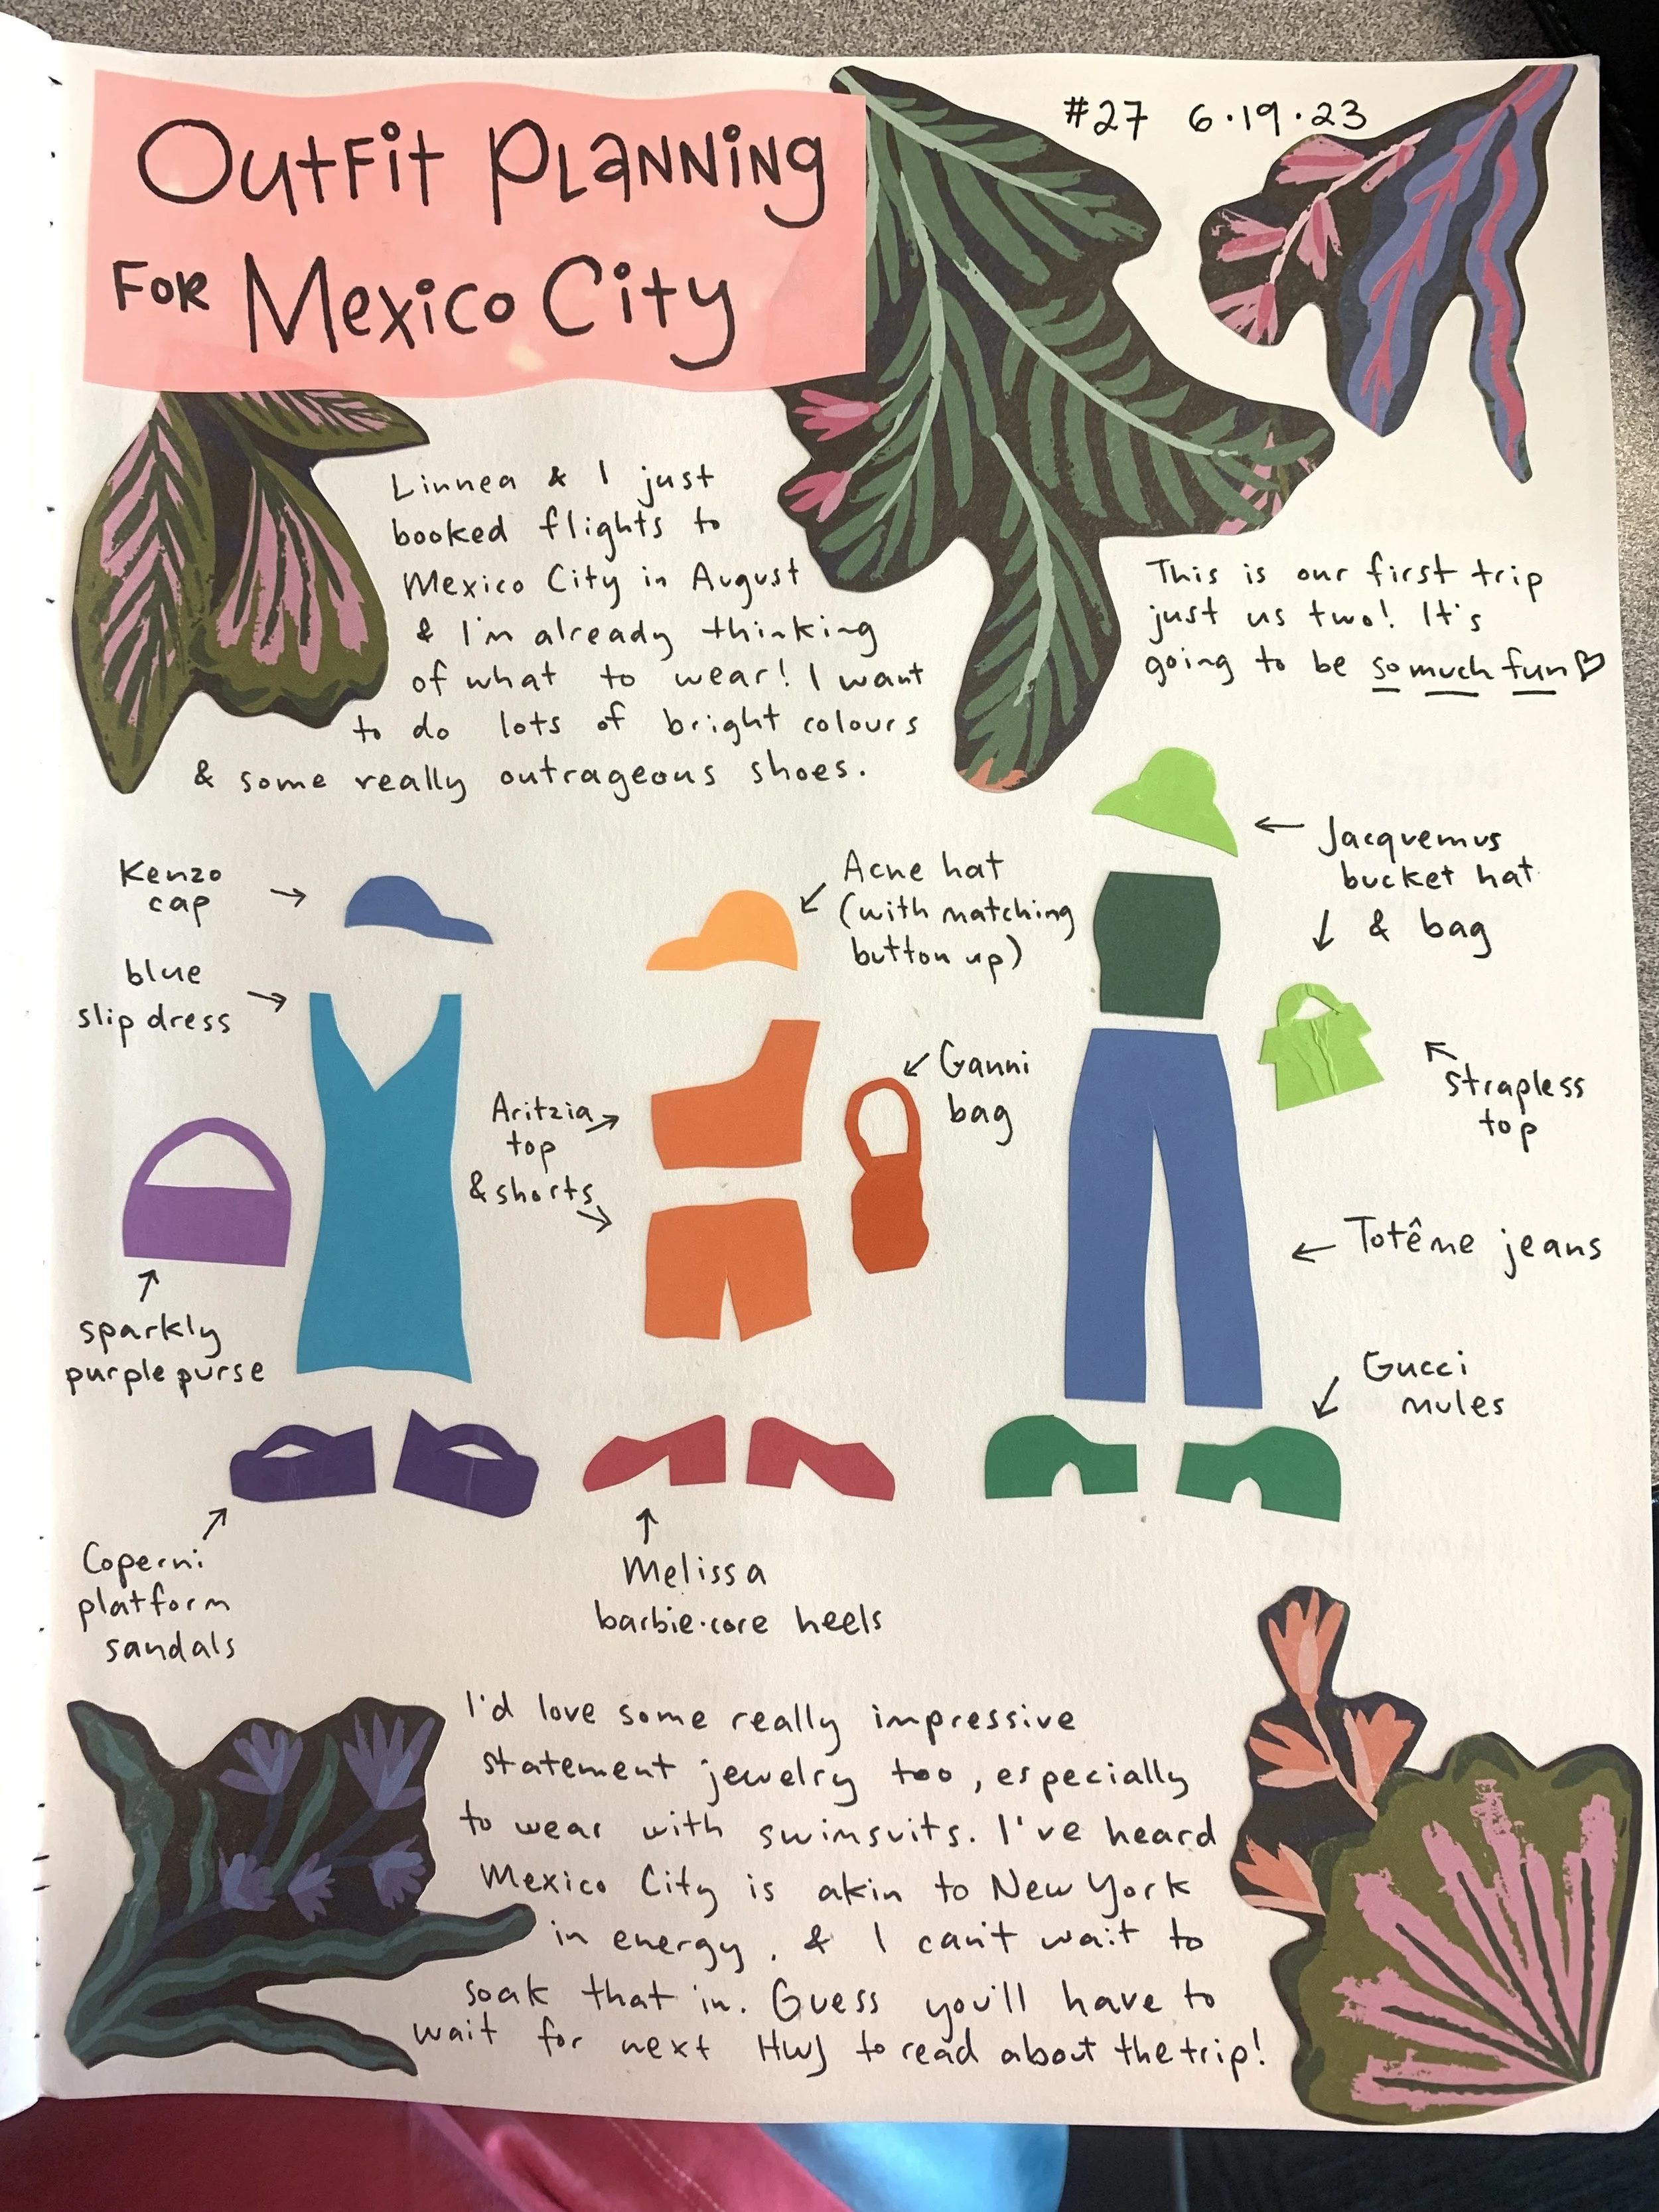 Outfit Planning
for Mexico City
#27 6.19.23
Linnea & I just
booked flights to
Mexico City in August
& I'm already thinking
of what to wear! I want
to do lots of bright colours
& some really outrageous shoes.
This is our first trip
just us two! It's
going to be so much fun♡
Kenzo
cap
→
blue
slip dress
→
sparkly
purple purse
↑
Coperni
platform
sandals
↗
Acne hat
(with matching
button up)
↙
Aritzia →
top
& shorts
→
↙ Ganni
bag
↑
Melissa
barbie·core heels
← Jacquemus
bucket hat
↓ & bag
↖
strapless
top
← Totême jeans
Gucci
↙ mules
I'd love some really impressive
statement jewelry too, especially
to wear with swimsuits. I've heard
Mexico City is akin to New York
in energy, & I can't wait to
soak that in. Guess you'll have to
wait for next HWJ to read about the trip!